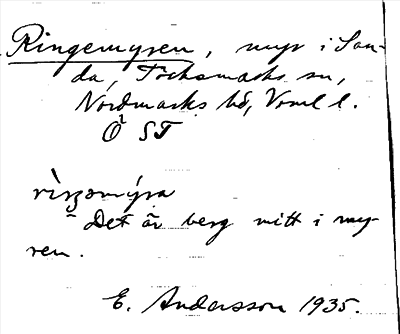 Ringemyren, myr i San-
da, Töcksmarks sn,
Nordmarks hd, Vrml l.
Ö ST
rìŋ̣ǝmýra
Det är berg mitt i my-
ren.
E. Andersson 1935.